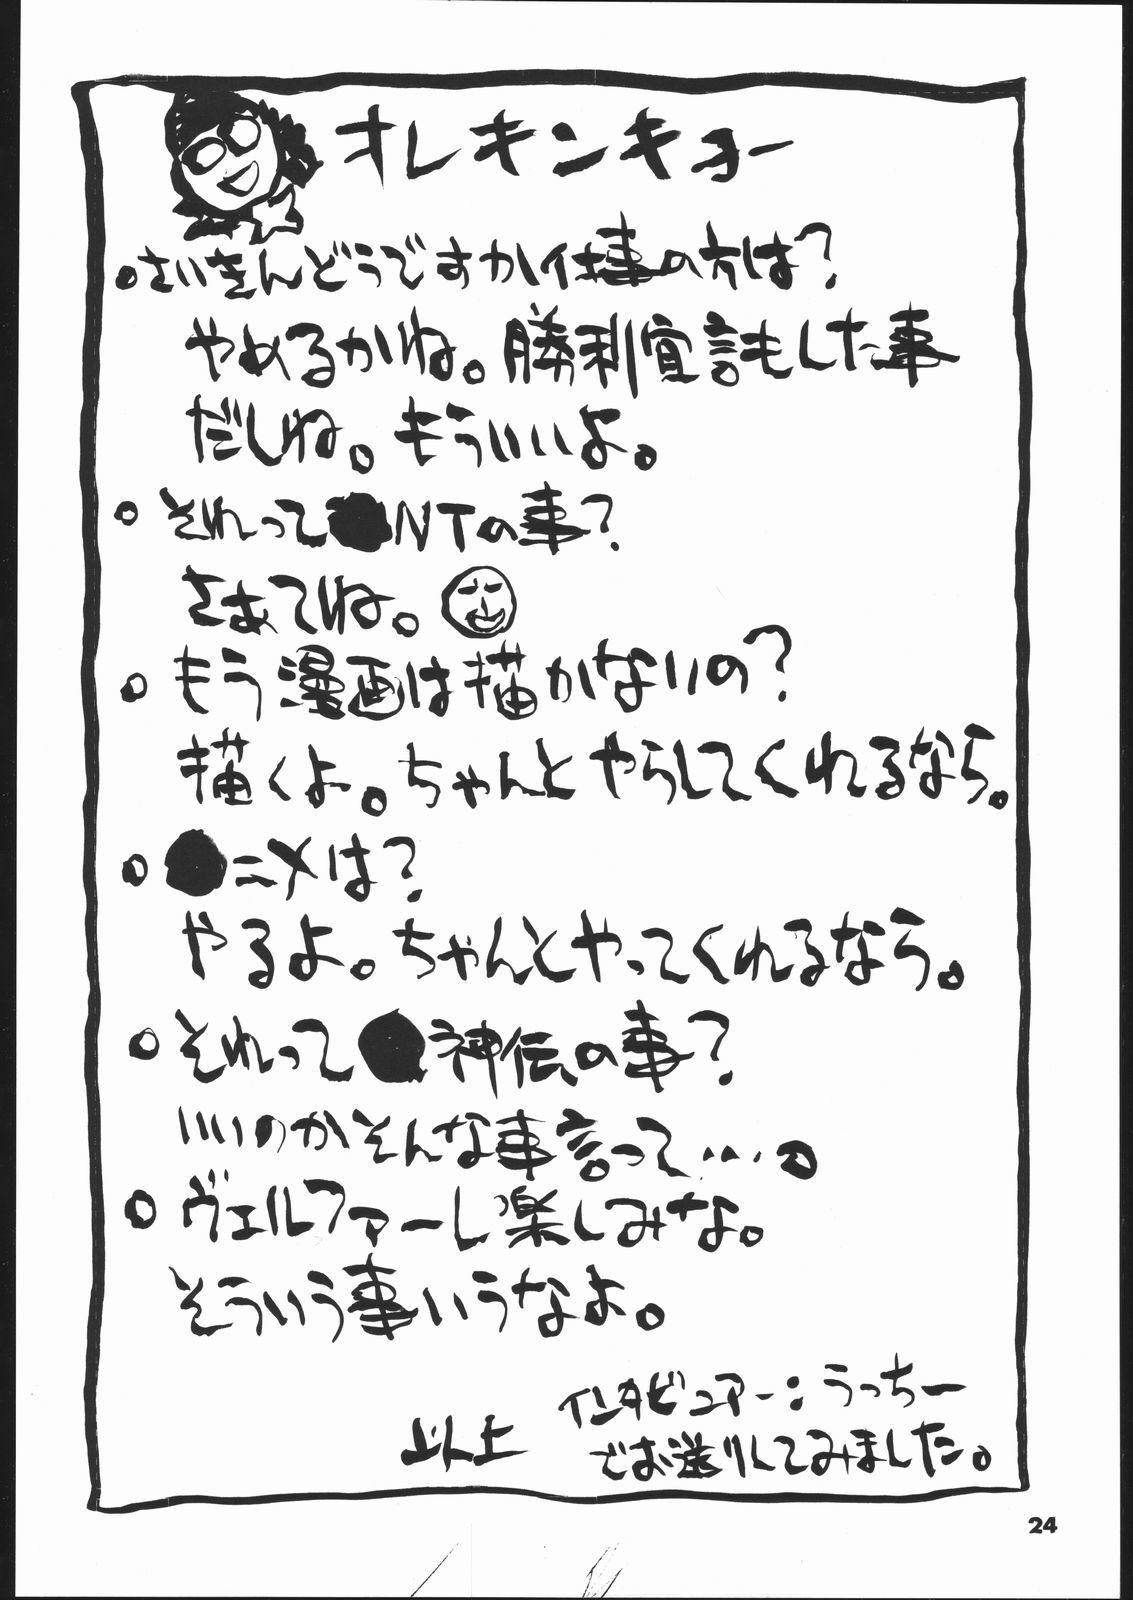 オレキンキョー
。さいきんどうですか仕事の方は?
やめるかね。勝利宣言もした事
だしね。もういいよ。
。それって●NTの事?
さぁてね。
。もう漫画は描かないの?
描くよ。ちゃんとやらしてくれるなら。
。●ニメは?
やるよ。ちゃんとやってくれるなら。
。それって●神伝の事?
いいのかそんな事言って…。
。ヴェルファーレ楽しみな。
そういう事いうなよ。
インタビュアー:うっちー
以上 でお送りしてみました。
24